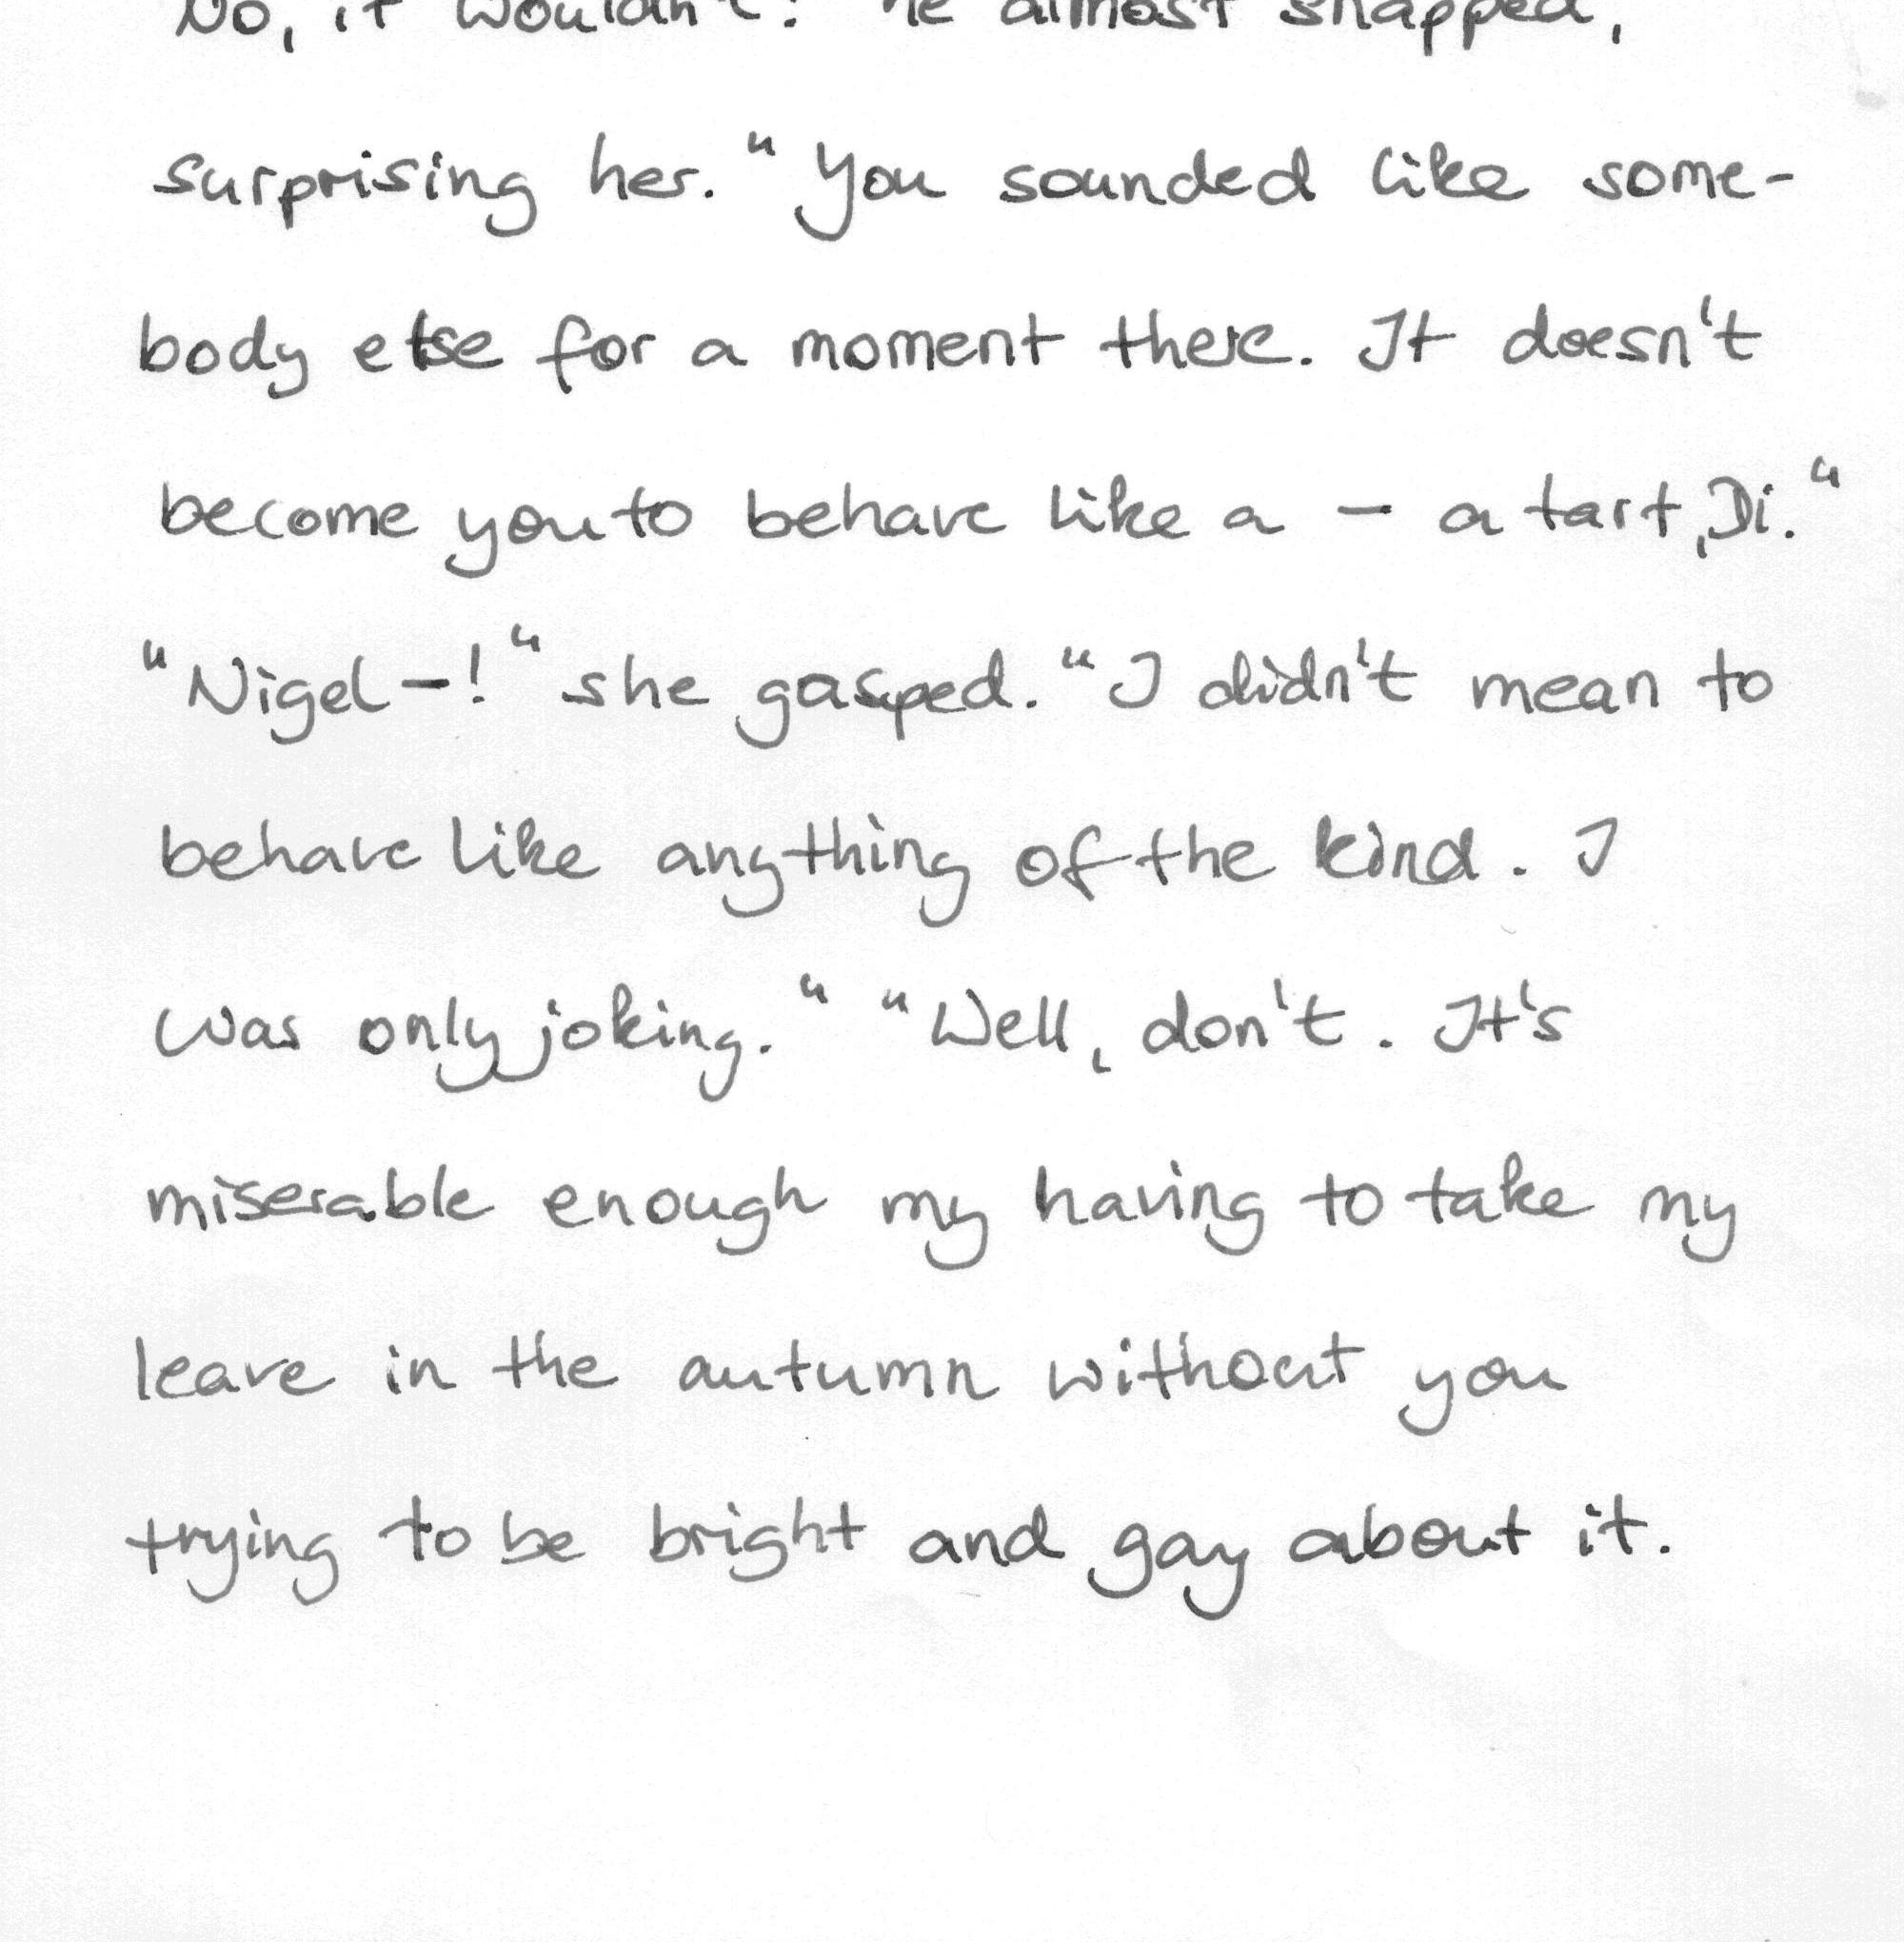 No, it wouldn't! he almost snapped,
surprising her. "You sounded like some-
body else for a moment there. It doesn't
become you to behave like a - a tart, Di."
"Nigel-!" she gasped. "I didn't mean to
behave like anything of the kind. I
was only joking." "Well, don't. It's
miserable enough my having to take my
leave in the autumn without you
trying to be bright and gay about it.